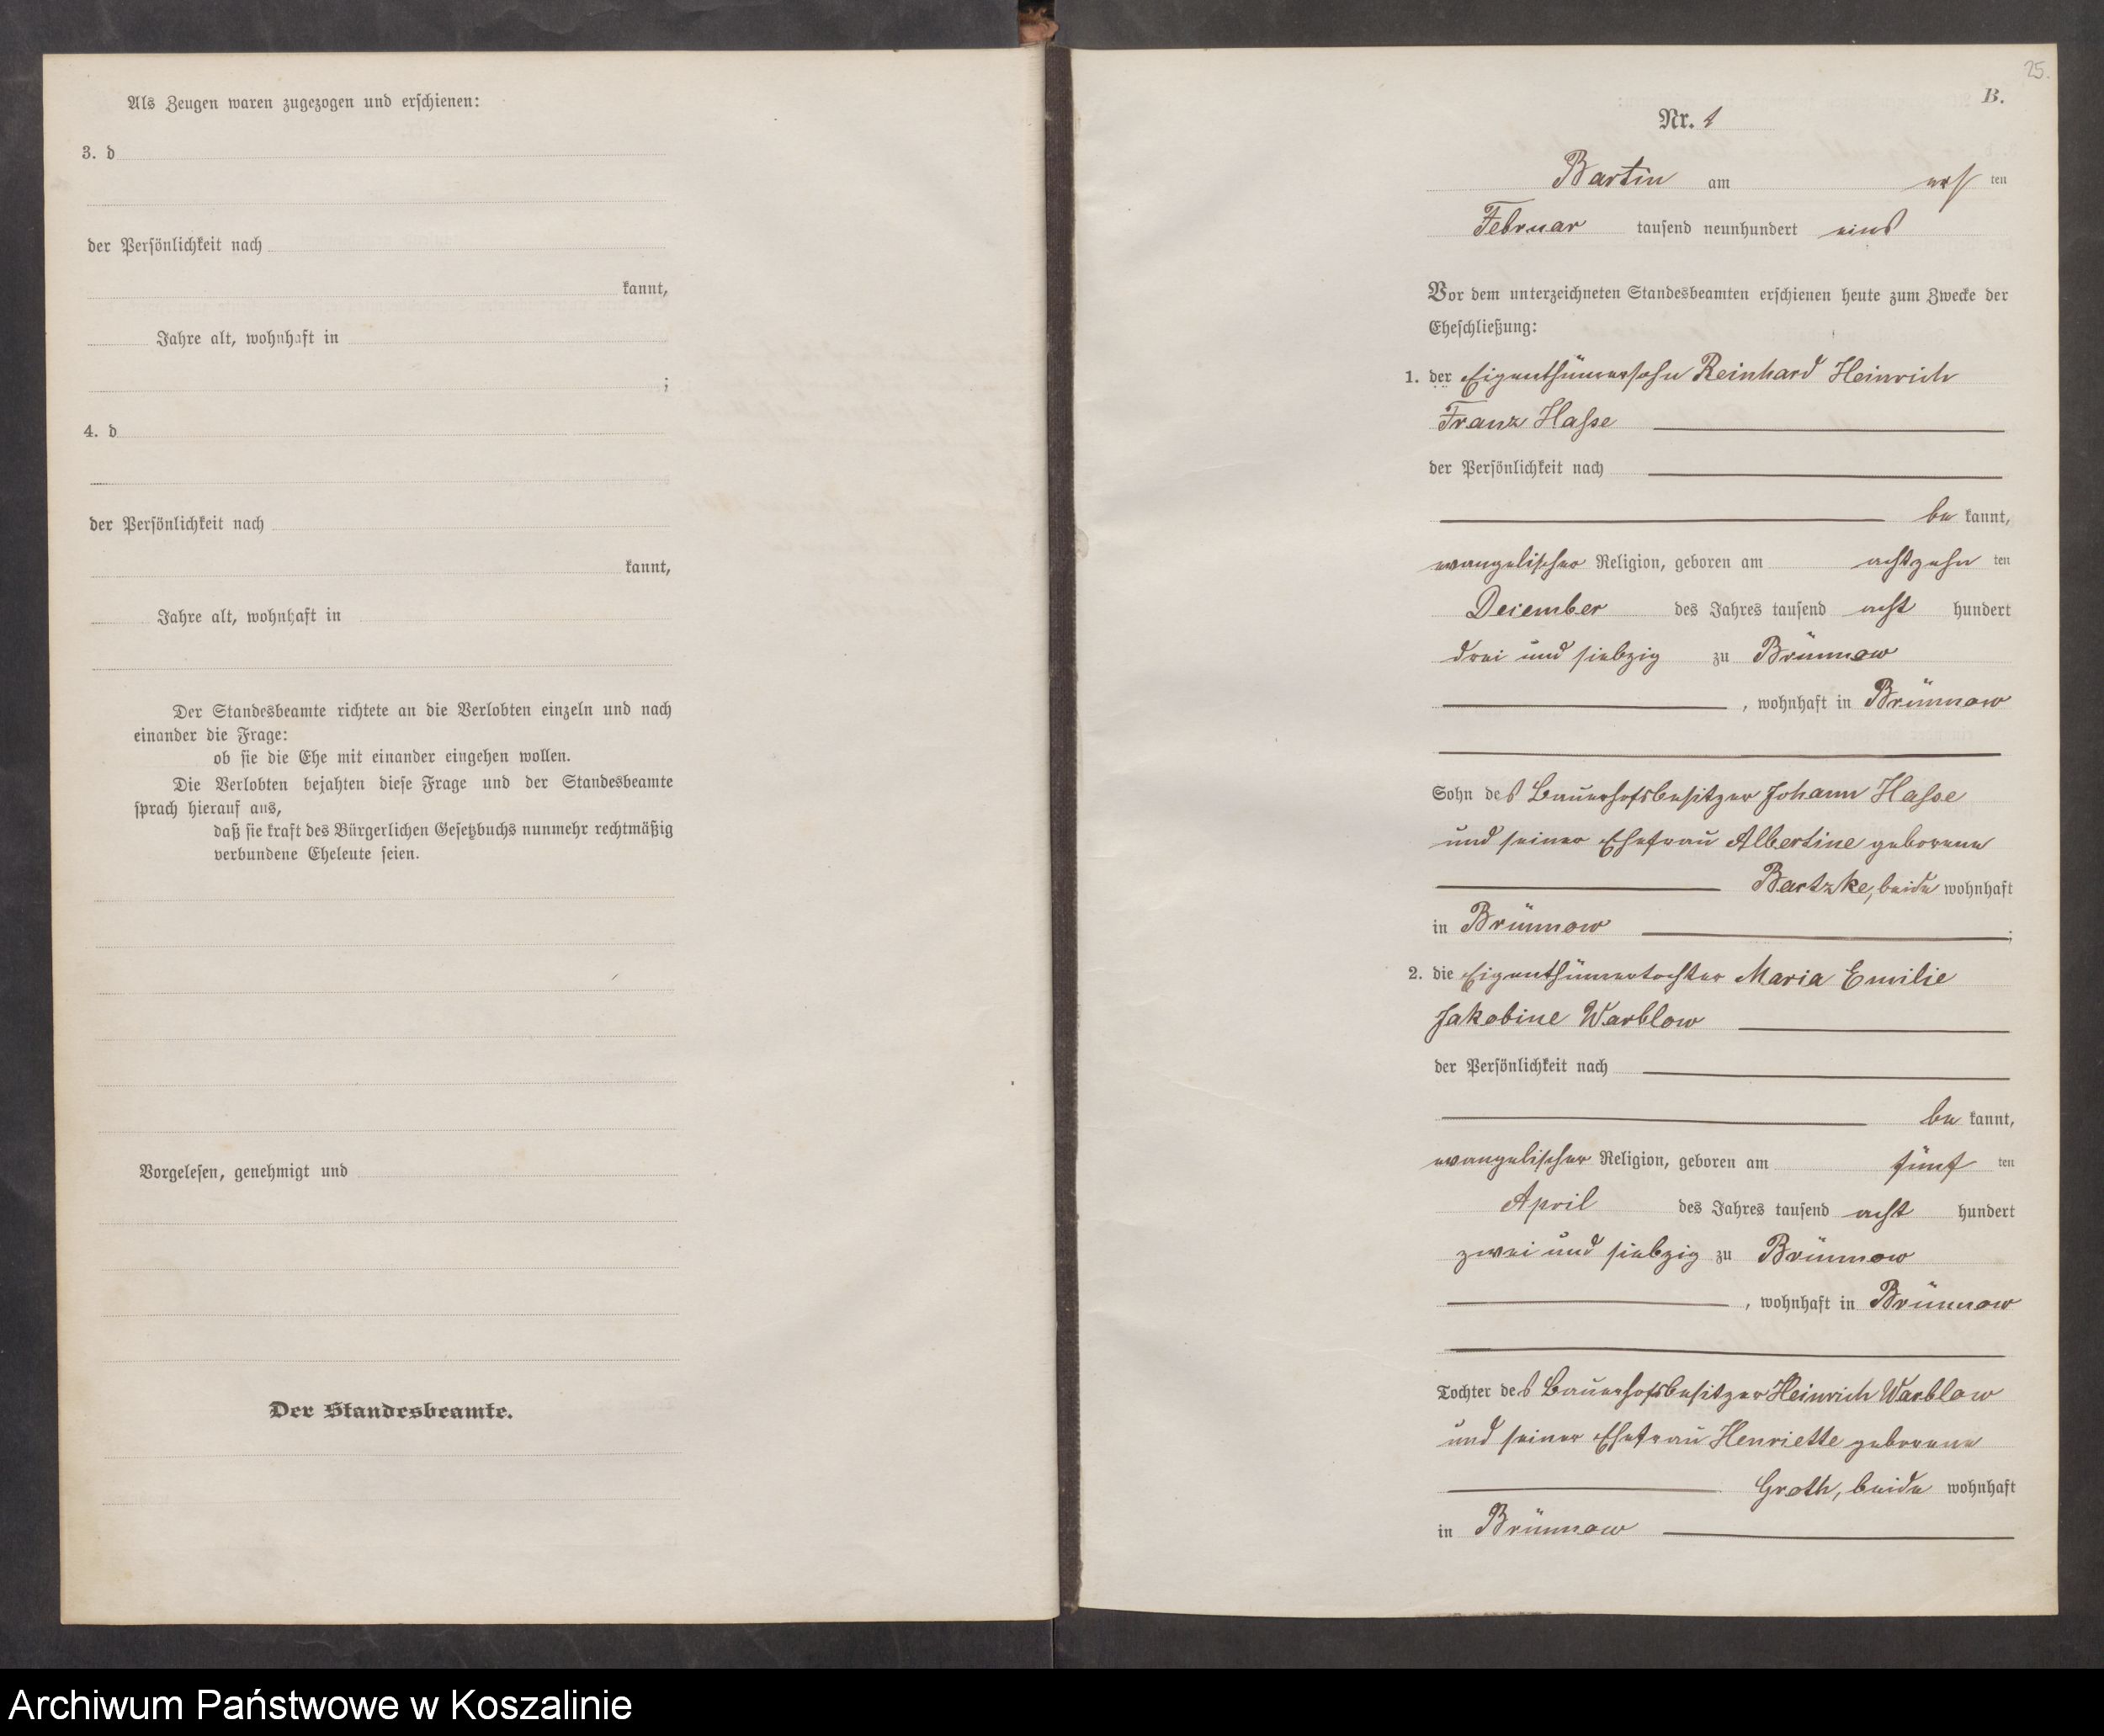 Als Zeugen waren zugezogen und erschienen:
3. d
der Persönlichkeit nach
kannt,
Jahre alt, wohnhaft in
;
4. d
der Persönlichkeit nach
kannt,
Jahre alt, wohnhaft in
Der Standesbeamte richtete an die Verlobten einzeln und nach
einander die Frage:
ob sie die Ehe mit einander eingehen wollen.
Die Verlobten bejahten diese Frage und der Standesbeamte
sprach hierauf aus,
daß sie kraft des Bürgerlichen Gesetzbuchs nunmehr rechtmäßig
verbundene Eheleute seien.
Vorgelesen, genehmigt und
Der Standesbeamte.
25.
B.
Nr. 1
Bartin am ersten
Februar tausend neunhundert eins
Vor dem unterzeichneten Standesbeamten erschienen heute zum Zwecke der
Eheschließung:
1. der Eigenthümersohn Reinhard Heinrich
Franz Hasse
der Persönlichkeit nach
bekannt,
evangelischer Religion, geboren am achtzehnten
Dezember des Jahres tausend acht hundert
drei und siebzig zu Brünnow
, wohnhaft in Brünnow
Sohn des Bauerhofsbesitzer Johann Hasse
und seiner Ehefrau Albertine geborene
Bartzke, beide wohnhaft
in Brünnow ;
2. die Eigenthümertochter Maria Emilie
Jakobine Warblow
der Persönlichkeit nach
bekannt,
evangelischer Religion, geboren am fünften
April des Jahres tausend acht hundert
zwei und siebzig zu Brünnow
, wohnhaft in Brünnow
Tochter des Bauerhofsbesitzer Heinrich Warblow
und seiner Ehefrau Henriette geborene
Groth, beide wohnhaft
in Brünnow
Archiwum Państwowe w Koszalinie